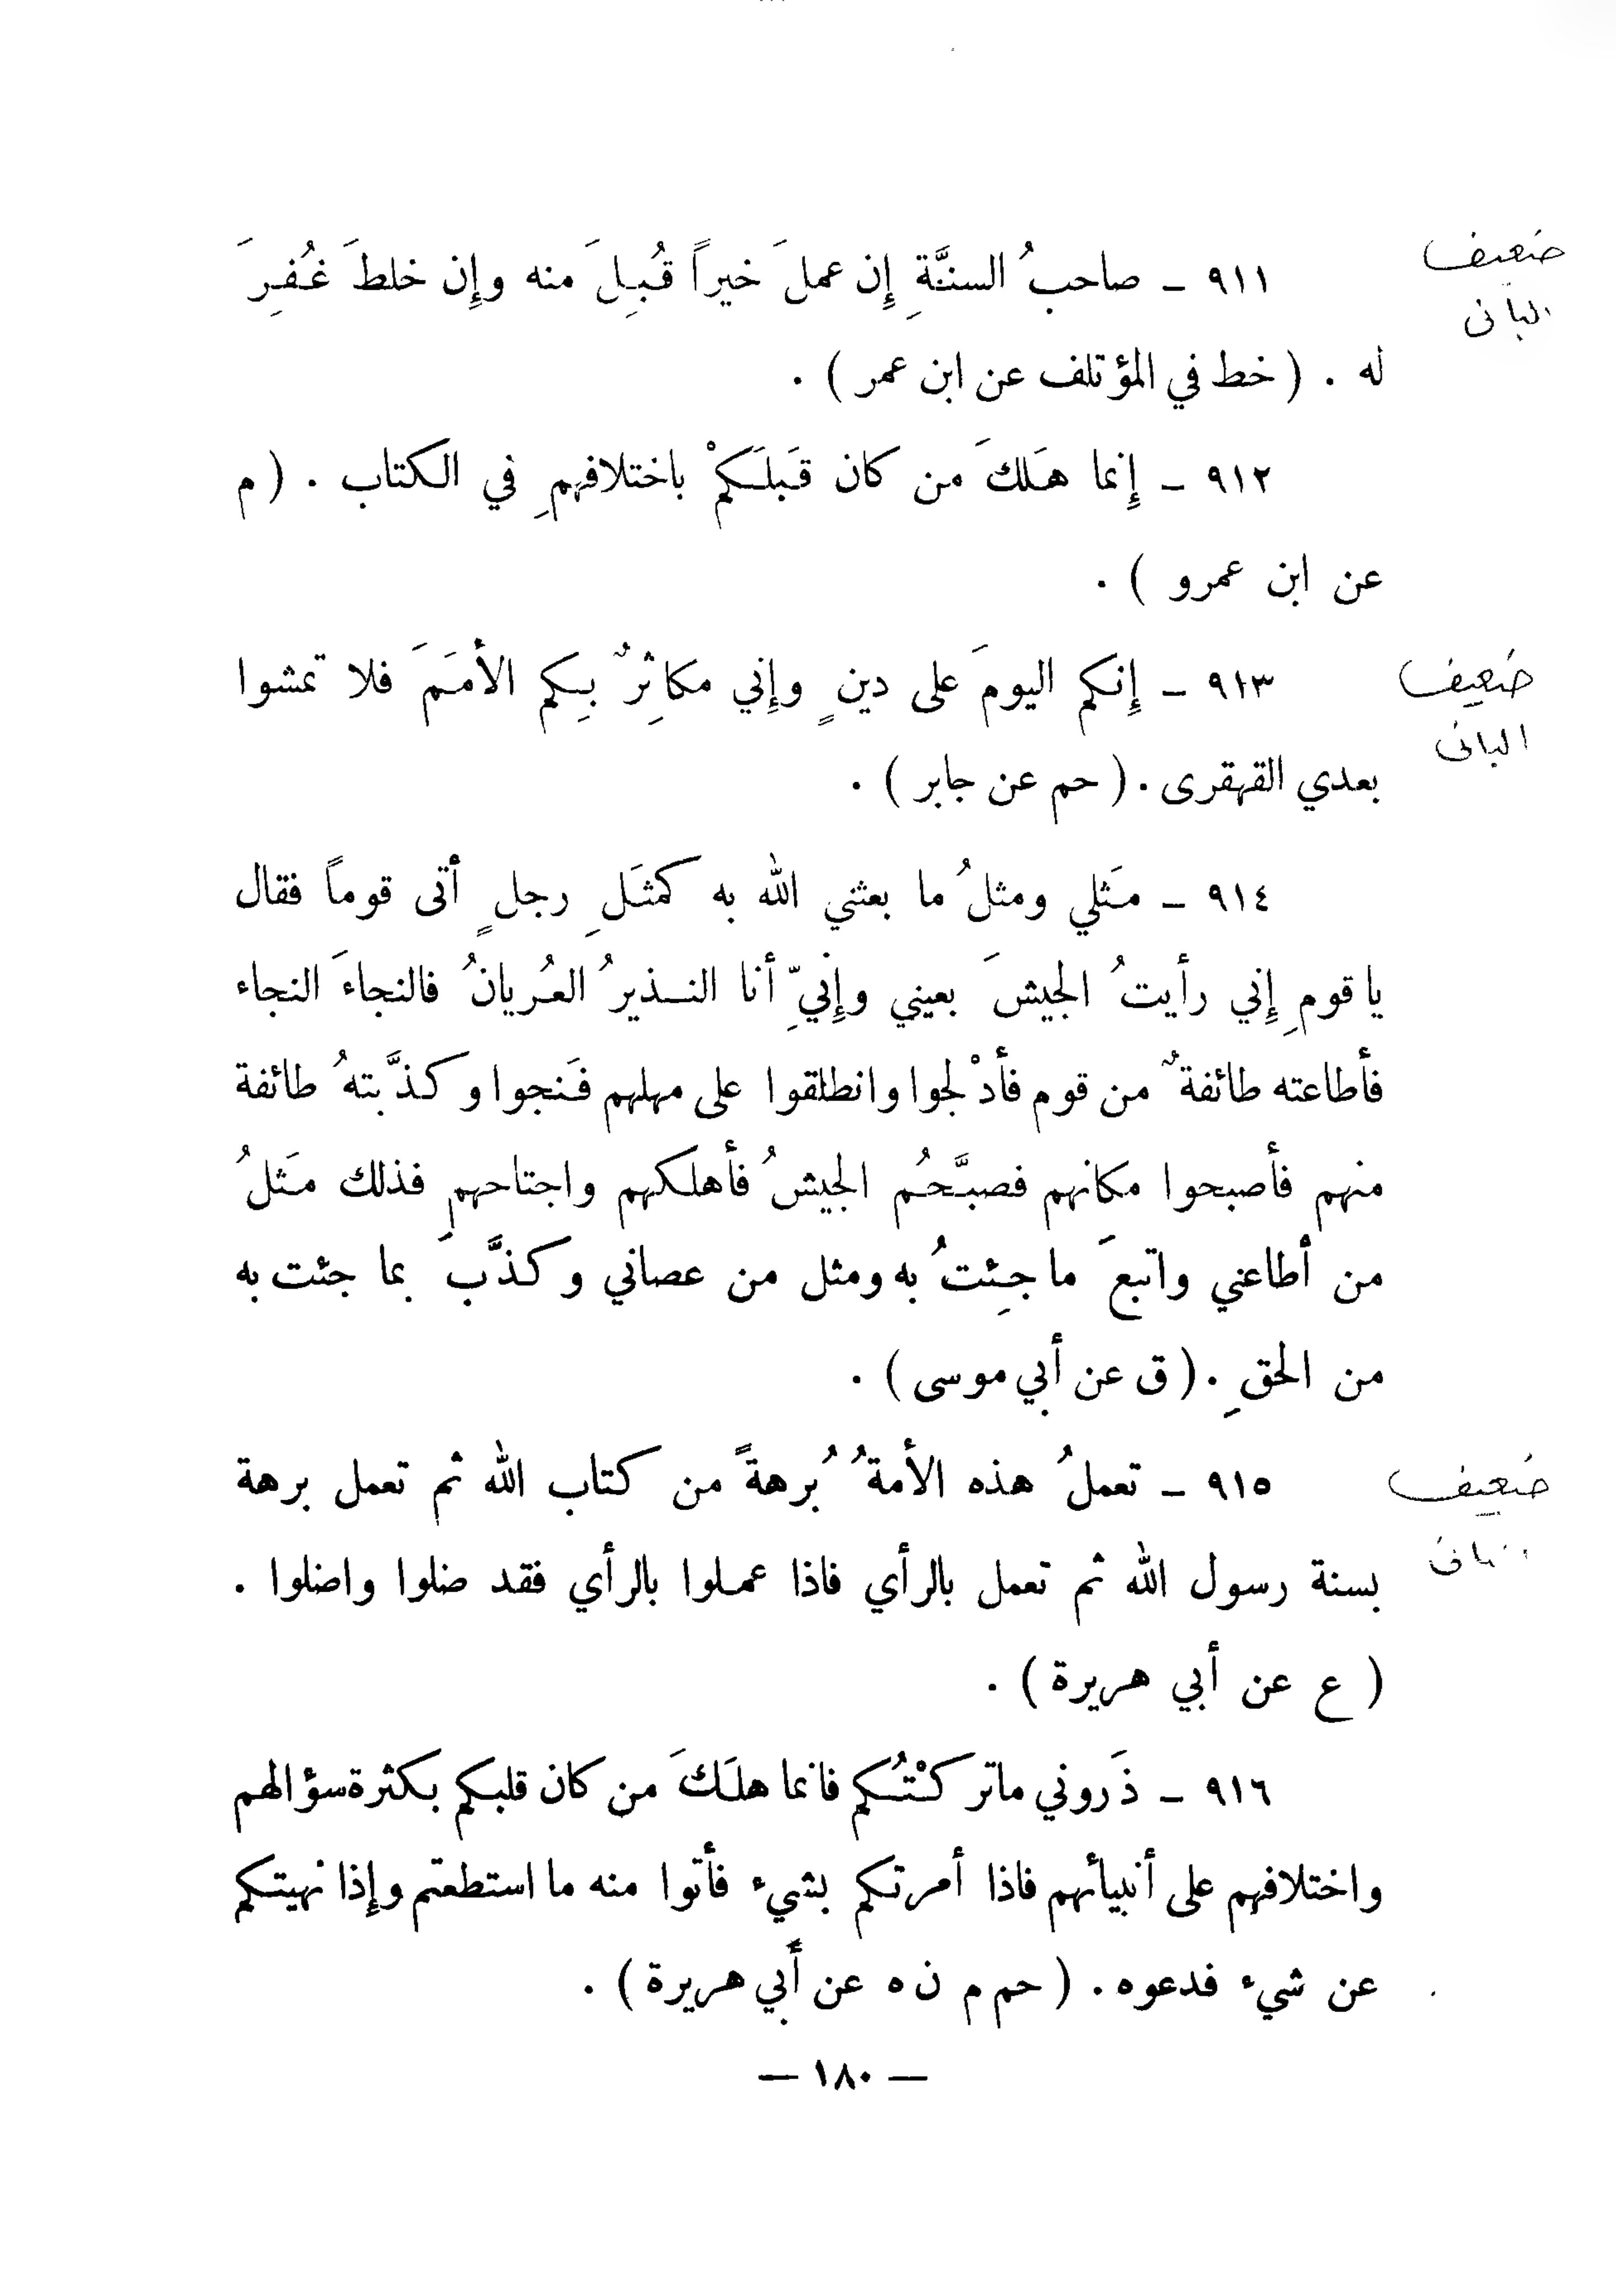 ضعيف
البانى
٩١١ ـ صاحبُ السنَّةِ إِن عملَ خيراً قُبِلَ منه وإِن خلطَ غُفِرَ
له . ( خط في المؤتلف عن ابن عمر ) .
٩١٢ ـ إِنما هَلكَ من كان قَبلَكمْ باختلافهمِ في الكتاب . ( م
عن ابن عمرو ) .
ضعيف
البانى
٩١٣ ـ إِنكم اليومَ على دينٍ وإِني مكاثِرٌ بِكم الأمَمَ فلا تمشوا
بعدي القهقرى . ( حم عن جابر ) .
٩١٤ ـ مَثلي ومثلُ ما بعثني الله به كمثَلِ رجلٍ أتى قوماً فقال
يا قومِ إِني رأيتُ الجيشَ بعيني وإِنيِّ أنا النـذيرُ العُريانُ فالنجاءَ النجاء
فأطاعته طائفةٌ من قوم فأدْلجوا وانطلقوا على مهلهم فَنجوا وكذَّبتهُ طائفة
منهم فأصبحوا مكانهم فصبَّحُم الجيشُ فأهلكهم واجتاحهمِ فذلك مَثلُ
من أطاعني واتبعَ ما جِئتُ به ومثل من عصاني وكذَّبَ بما جئت به
من الحقِ . ( ق عن أبي موسى ) .
ضعيف
٩١٥ ـ تعملُ هذه الأمةُ بُرهةً من كتاب الله ثم تعمل برهة
بسنة رسول الله ثم تعمل بالرأي فاذا عملوا بالرأي فقد ضلوا واضلوا .
( ع عن أبي هريرة ) .
٩١٦ ـ ذَروني ماتركْتُكم فانما هلَكَ من كان قلبكم بكثرة سؤالهم
واختلافهم على أنبيأئهم فاذا أمرتكم بشيء فأتوا منه ما استطعتم وإِذا نهيتكم
عن شيء فدعوه . ( حم م ن ه عن أبي هريرة ) .
— ١٨٠ —